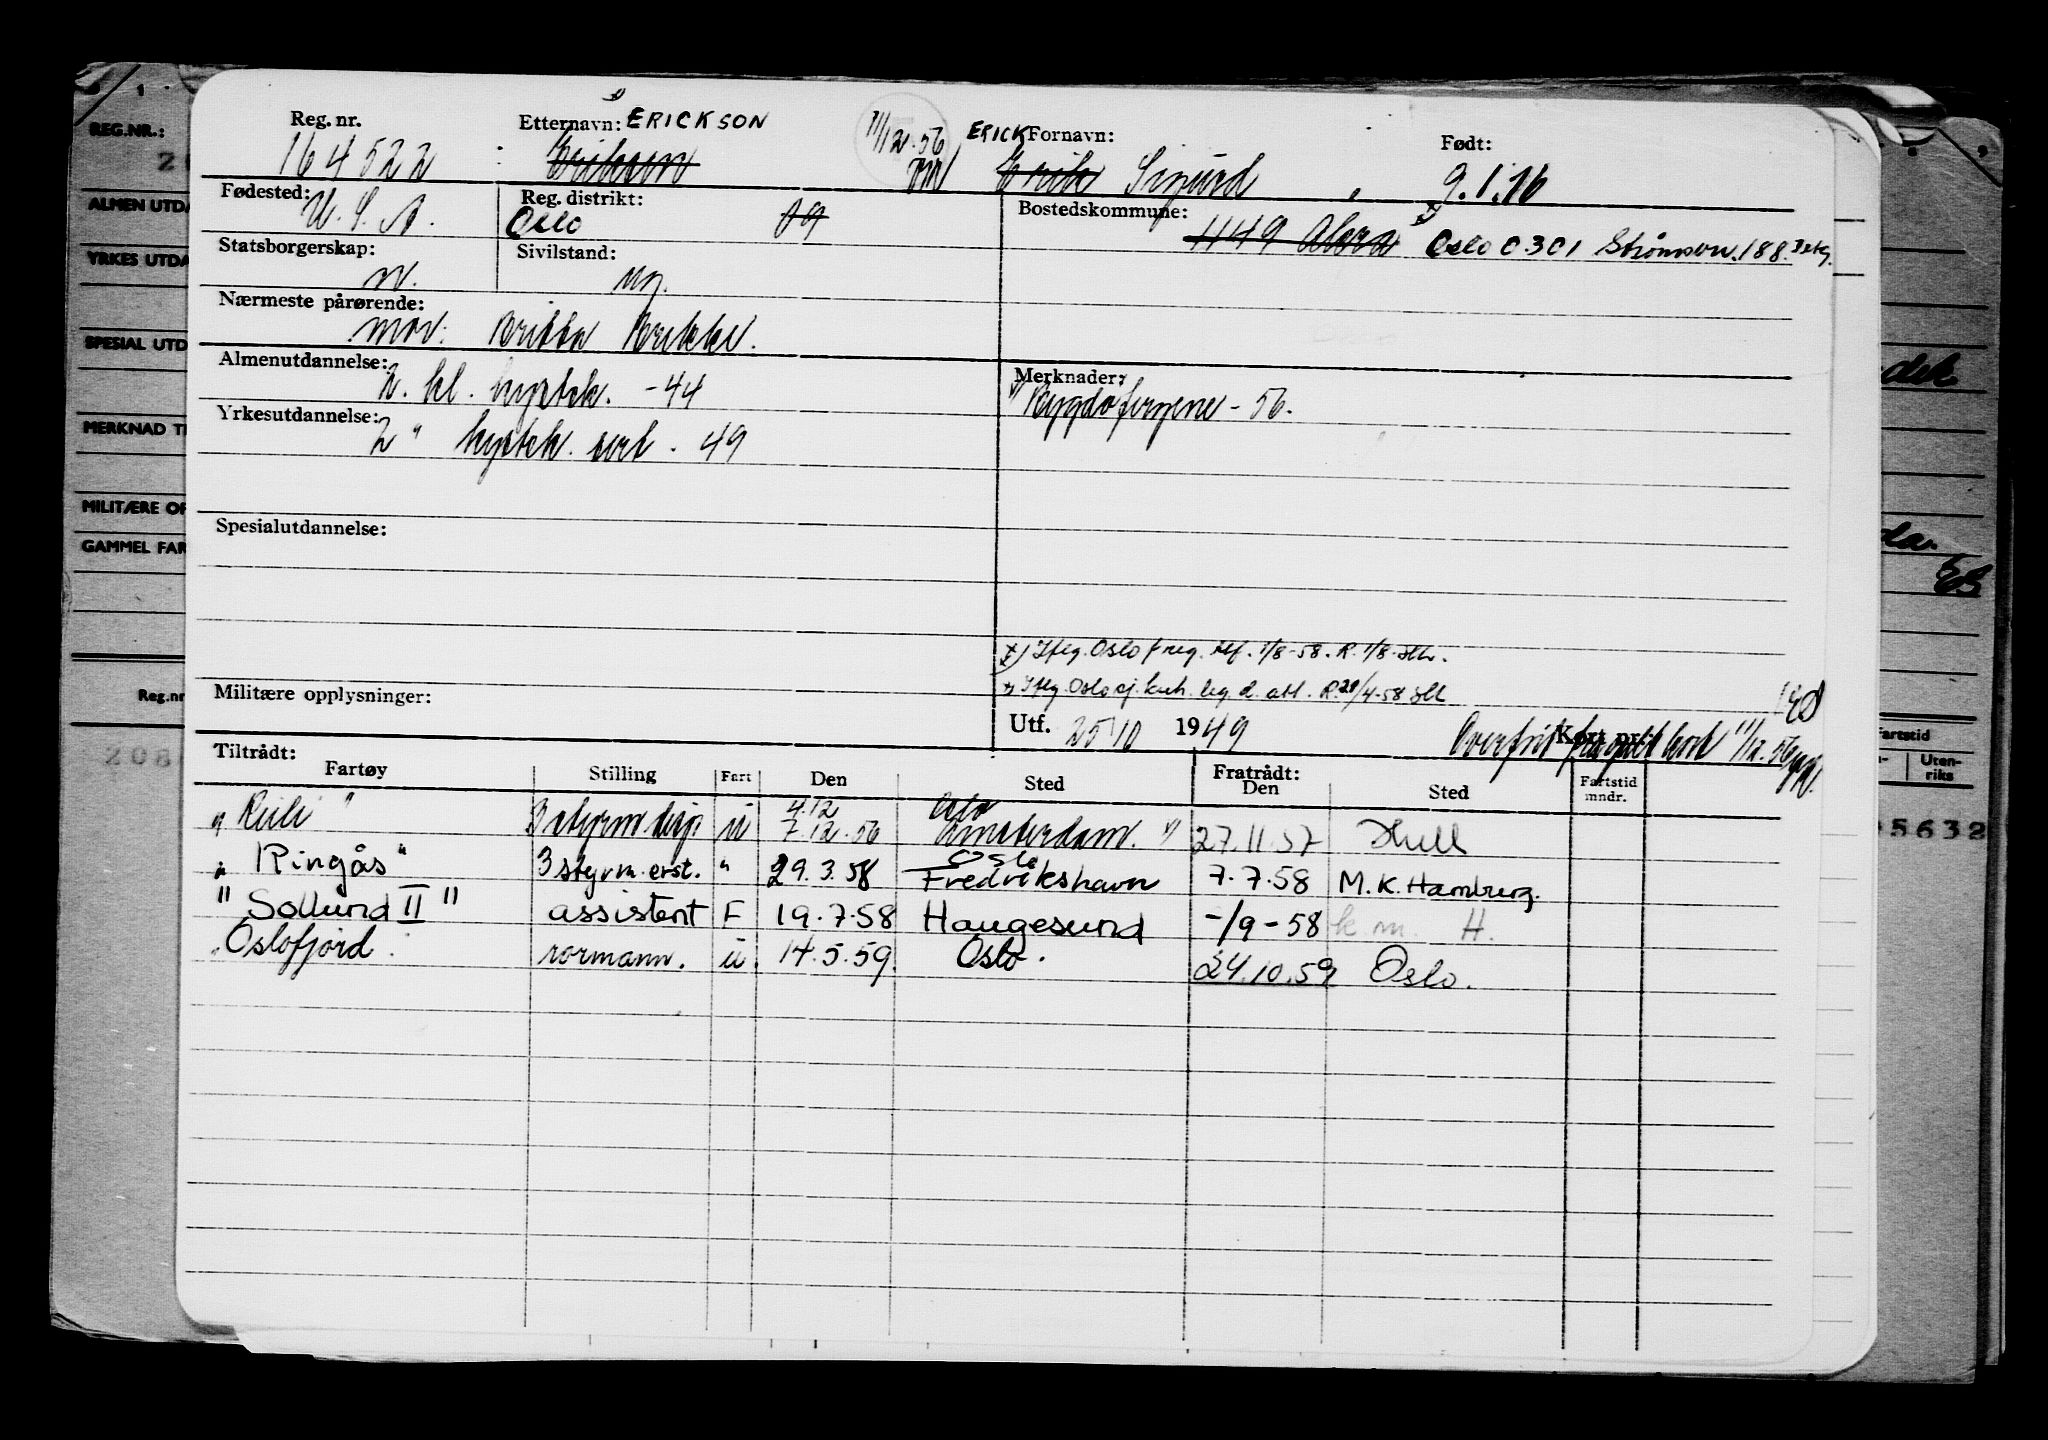 REG.NR.:
ALMEN UTDA
YRKES UTDA
SPESIAL UTD
MERKNAD TI
MILITÆRE OP
GAMMEL FAR
Reg.nr
208
Reg. nr. Etternavn: ERICKSON 11/12.56 ERICK Fornavn: Født:
164522 Eriksen Erik Sigurd 9.1.16
Fødested: Reg. distrikt: Bostedskommune:
U.S.A. Oslo 09 1149 Oslo C 301 188
Statsborgerskap: Sivilstand:
n. ug.
Nærmeste pårørende:
mor: Britta
Almenutdannelse: Merknader:
2. kl. - 44 Bygdøfergene - 56.
Yrkesutdannelse:
2 " - 49
Spesialutdannelse:
Iflg. Oslo freg. 1/8-58. R. 1/8.
Iflg. Oslo R. 29/4-58
Militære opplysninger:
Utf. 25/10 1949 Kort nr. Overført fra kort 11/12.56
Tiltrådt: Fratrådt:
Fartøy Stilling Fart Den Sted Den Sted Fartstid mndr.
4.12 Oslo
3 styrm disp u 7.12.56 Amsterdam. 27.11.57 Hull
" Ringås " 3 styrm. erst. " 29.3.58 Oslo Fredrikshavn 7.7.58 M.K. Hamburg.
" Sollund II " assistent F 19.7.58 Haugesund -/9-58 k.m. H.
" Oslofjord. rormann. u. 14.5.59. Oslo. 24.10.59 Oslo.
dek
da.
Fartstid
Uten-
riks
5632